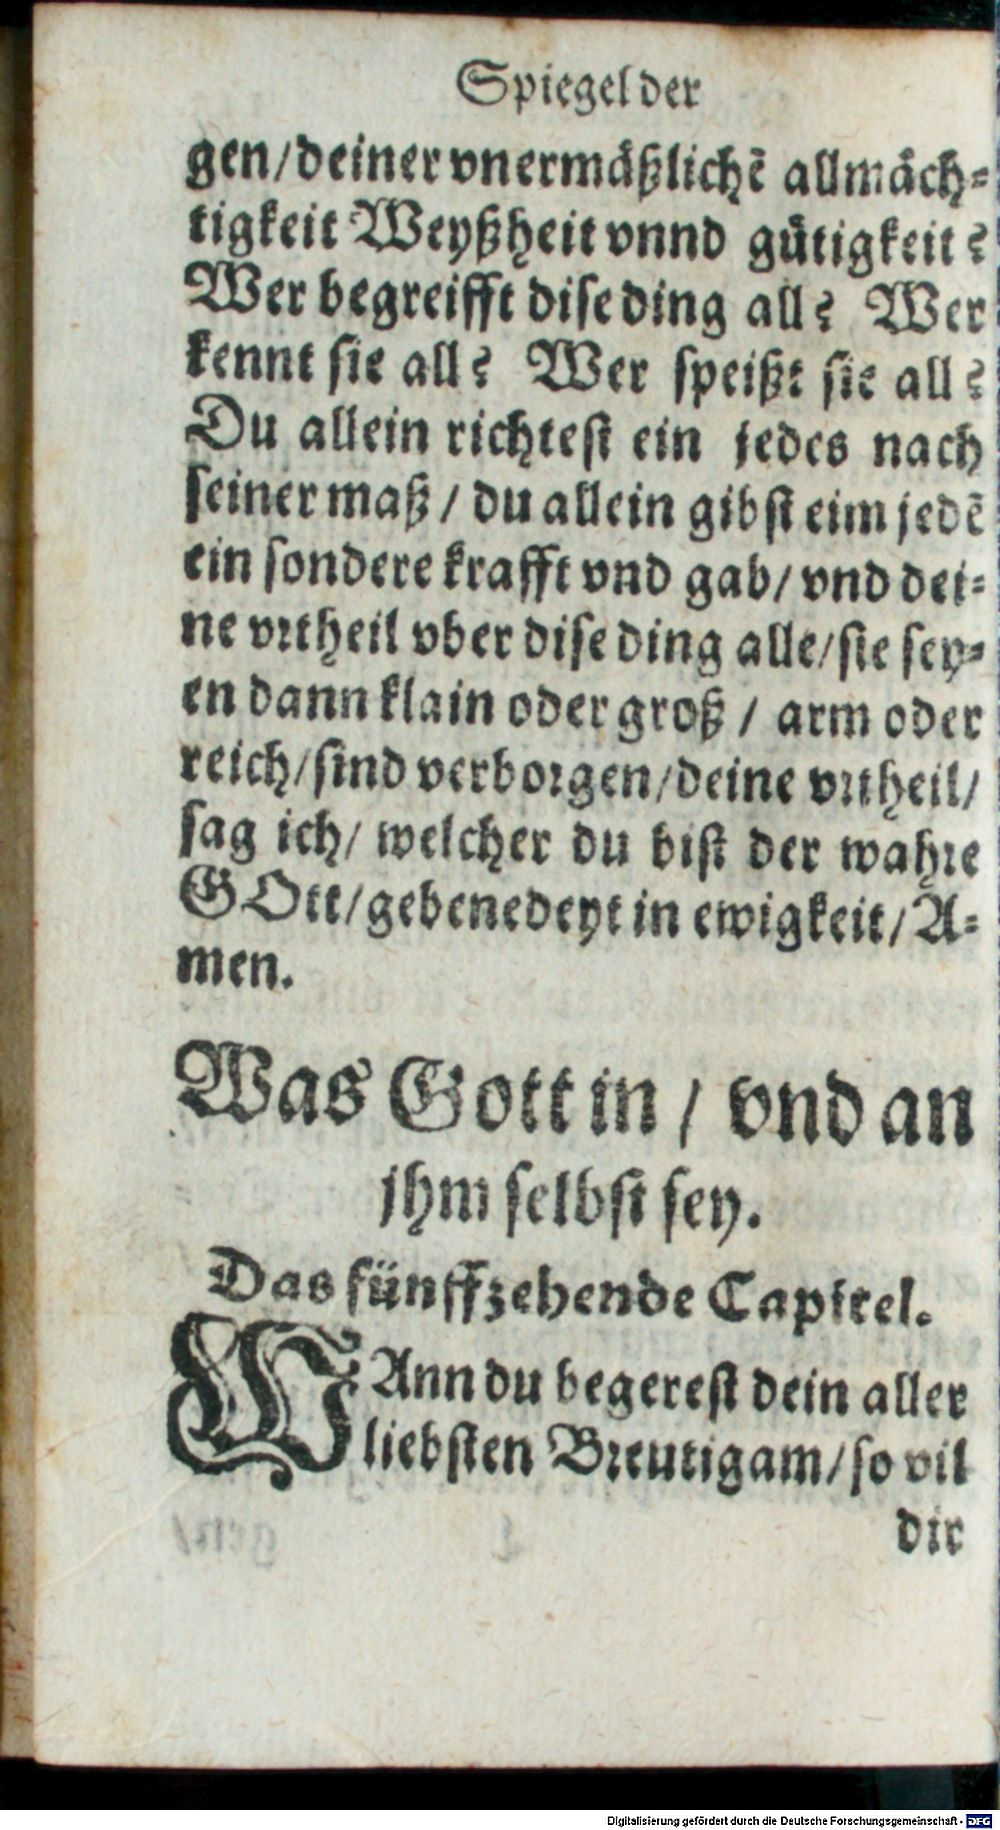 Spiegel der
gen/deiner vnermäßlichẽ allmäch-
tigkeit Weyßheit vnnd gütigkeit?
Wer begreifft dise ding all? Wer
kennt sie all? Wer speißt sie all?
Du allein richtest ein jedes nach
seiner maß / du allein gibst eim jedẽ
ein sondere krafft vnd gab/ vnd dei-
ne vrtheil vber dise ding alle/sie sey-
en dann klain oder groß / arm oder
reich/sind verborgen/deine vrtheil/
sag ich/ welcher du bist der wahre
GOtt/gebenedeyt in ewigkeit/A-
men.
Was Gott in / vnd an
jhm selbst sey.
Das fünffzehende Capitel.
WAnn du begerest dein aller
liebsten Breutigam/so vil
dir
Digitalisierung gefördert durch die Deutsche Forschungsgemeinschaft - DFG